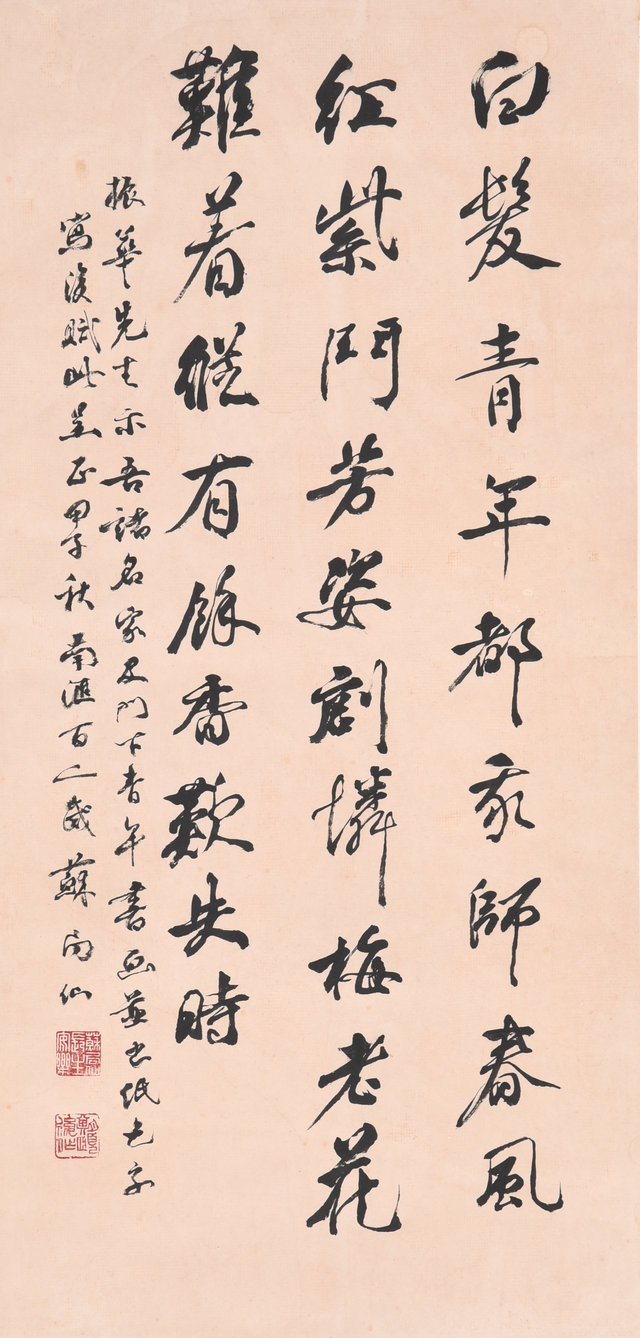 白髮青年都我師春風
紅紫鬥芳姿劇憐梅老花
難着縱有餘香歎失時
振華先生示吾諸名家及門下青年書畫並出紙乞字
寫後賦此并正甲子秋南匯百〇三歲蘇局仙